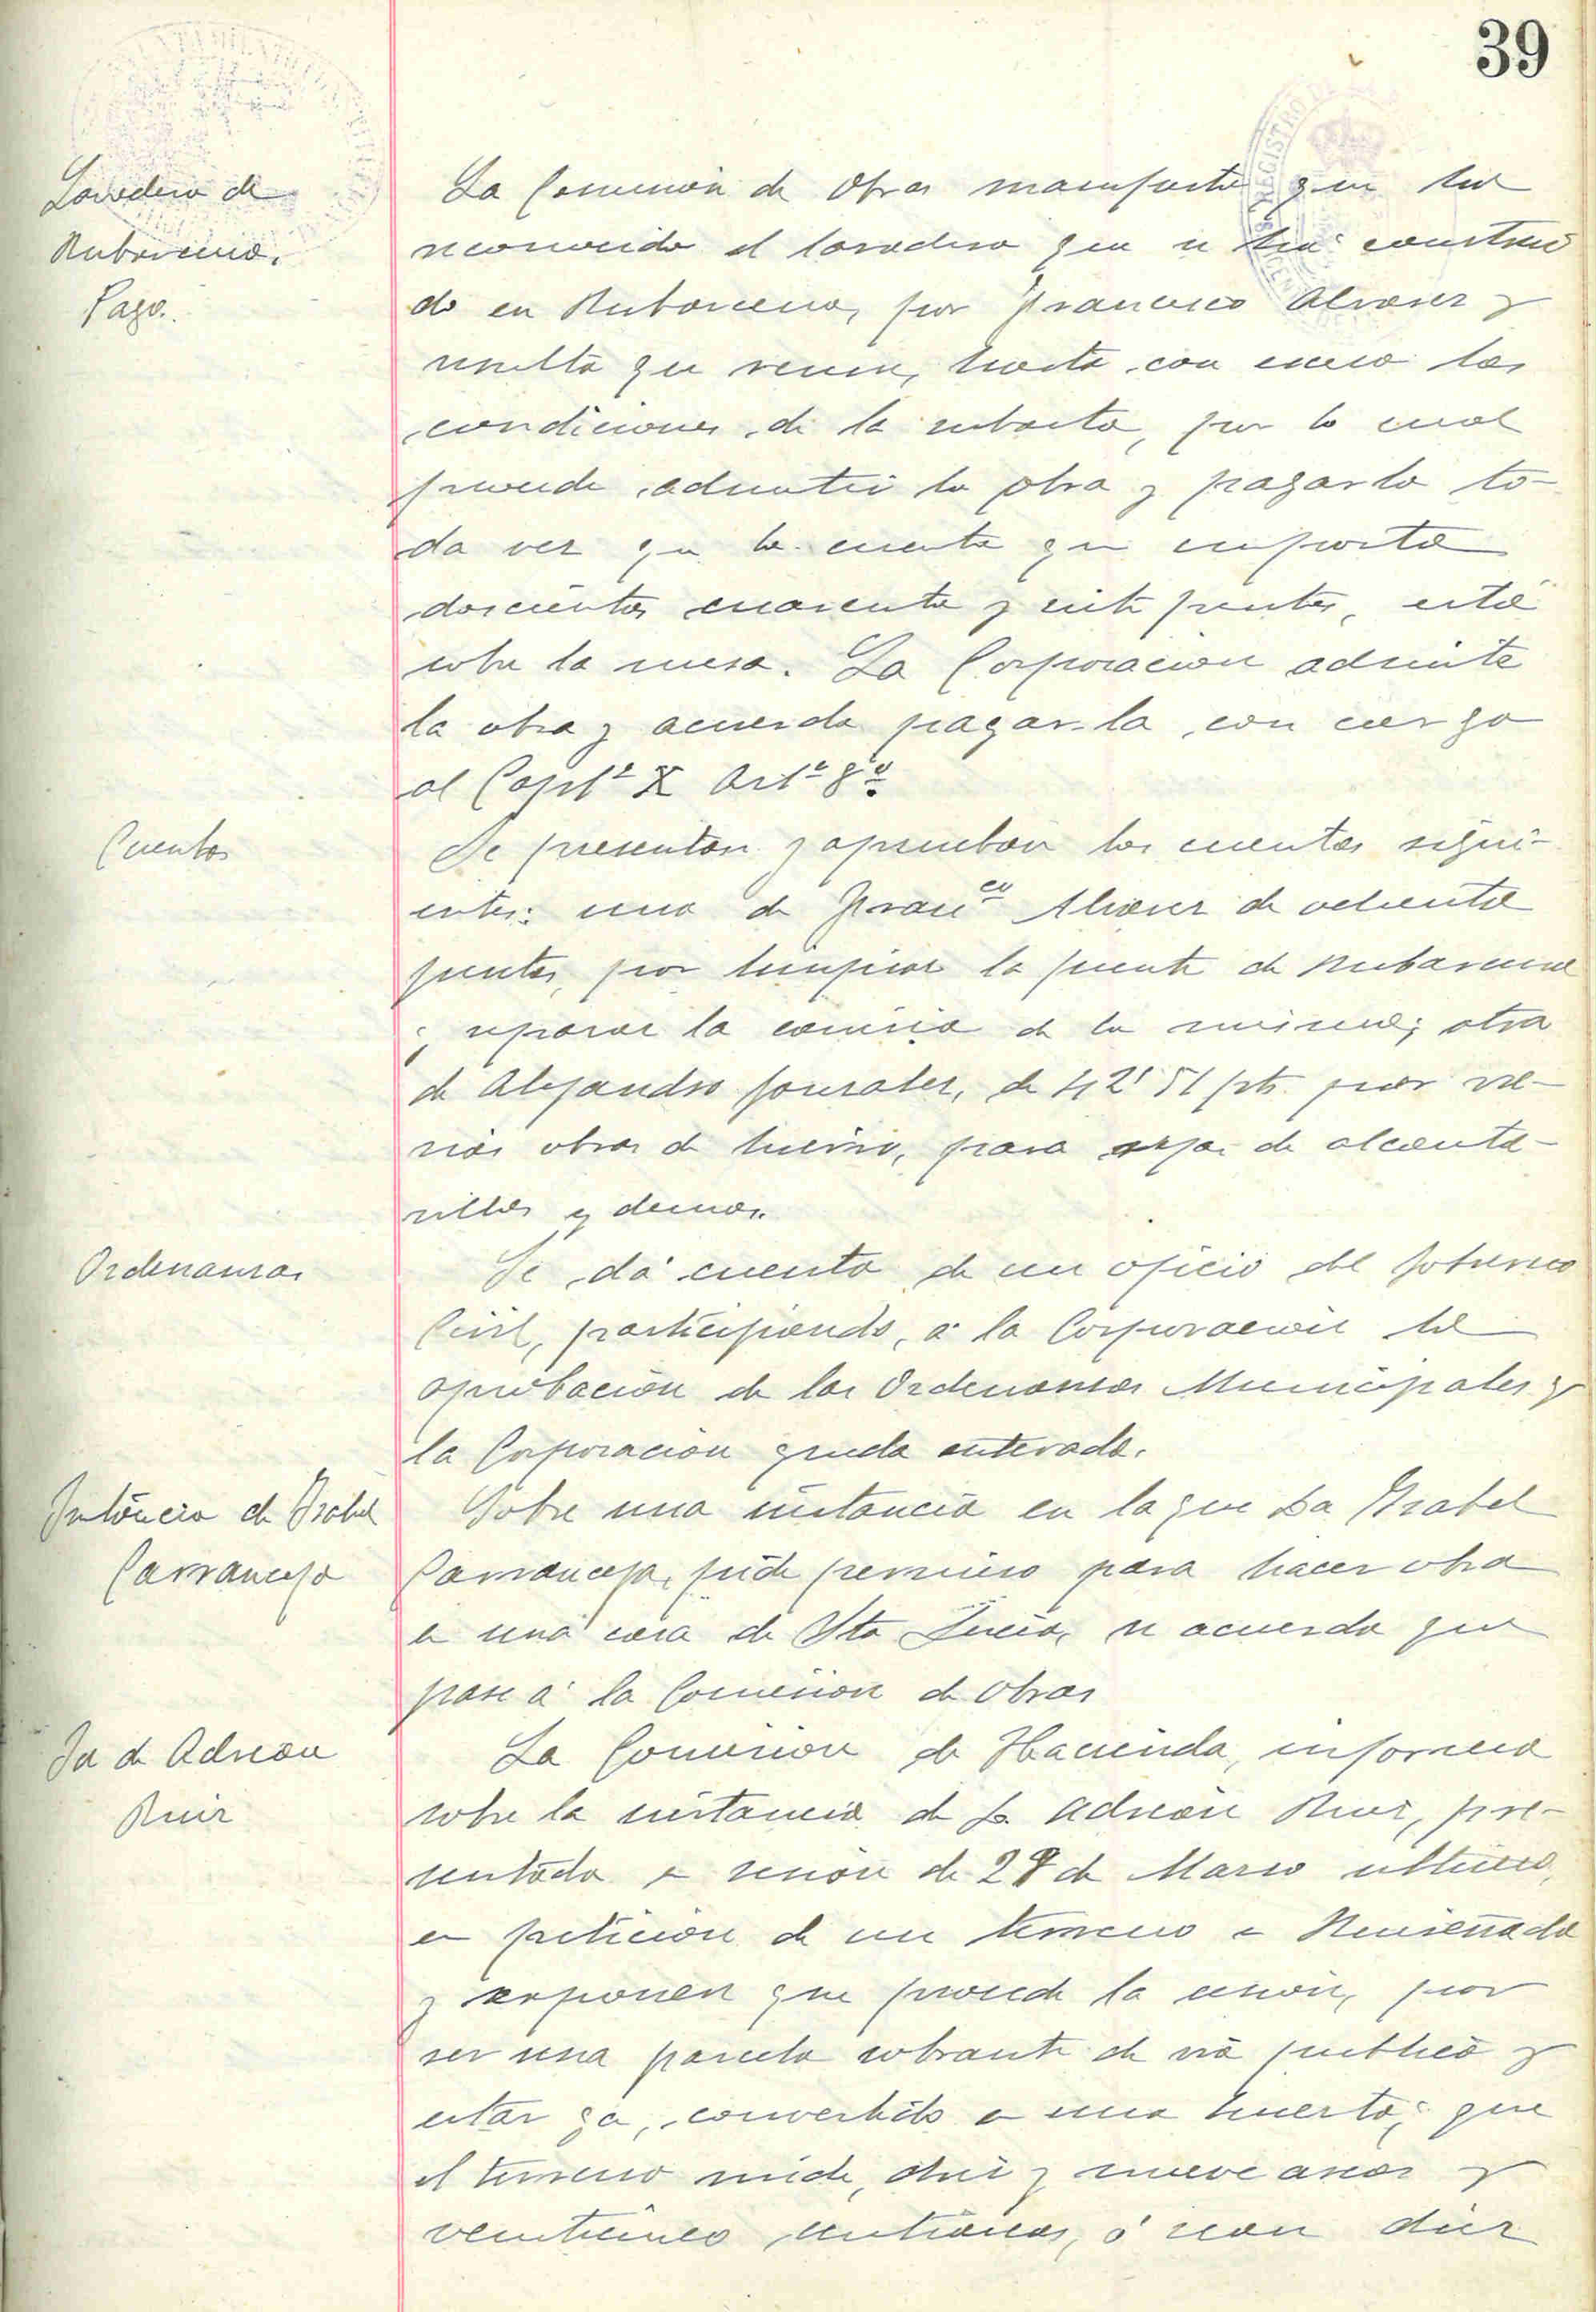 39
Lavadero de
Rubarcena.
Pago.
La Comisión de Obras manifiesta que ha
reconocido el lavadero que se ha construi
do en Rubarcena, por Francisco Alvarez y
resulta que reune, hasta con exceso las
condiciones de la subasta, por lo cual
procede admitir la obra y pagarla to-
da vez que la cuenta que importa
doscientas cuarenta y siete pesetas, está
sobre la mesa. La Corporacion admite
la obra y acuerda pagar-la, con cargo
al Capitº X Artº 8º
Cuentas
Se presentan y aprueban las cuentas sigui-
entes: una de Franco Alvarez de ochenta
pesetas, por limpiar la fuente de Rubarcena
y reparar la cañeria de la misma; otra
de Alejandro Gonzalez, de 42'51 pts. por va-
rias obras de hierro, para rejas de alcanta-
rillas y demas.
Ordenanzas
Se dá cuenta de un oficio del Gobierno
Civil, participando, á la Corporacion la
aprobación de las Ordenanzas Municipales y
la Corporacion queda enterada.
Instáncia de Isabel
Carranceja
Sobre una instancia en la que Da Isabel
Carranceja, pide permiso para hacer obra
en una casa de Sta Lucia, se acuerda que
pase á la Comision de Obras
Ia de Adrian
Ruiz
La Comision de Hacienda, informa
sobre la instancia de D. Adrián Ruiz, pre-
sentada en sesión de 28 de Marzo ultimo,
en petición de un terreno en
y exponen que procede la cesión, por
ser una parcela sobrante de vía publica y
estar ya, convertida en una huerta; que
el terreno mide, diez y nueve areas y
veinticinco centiareas, ó sean diez